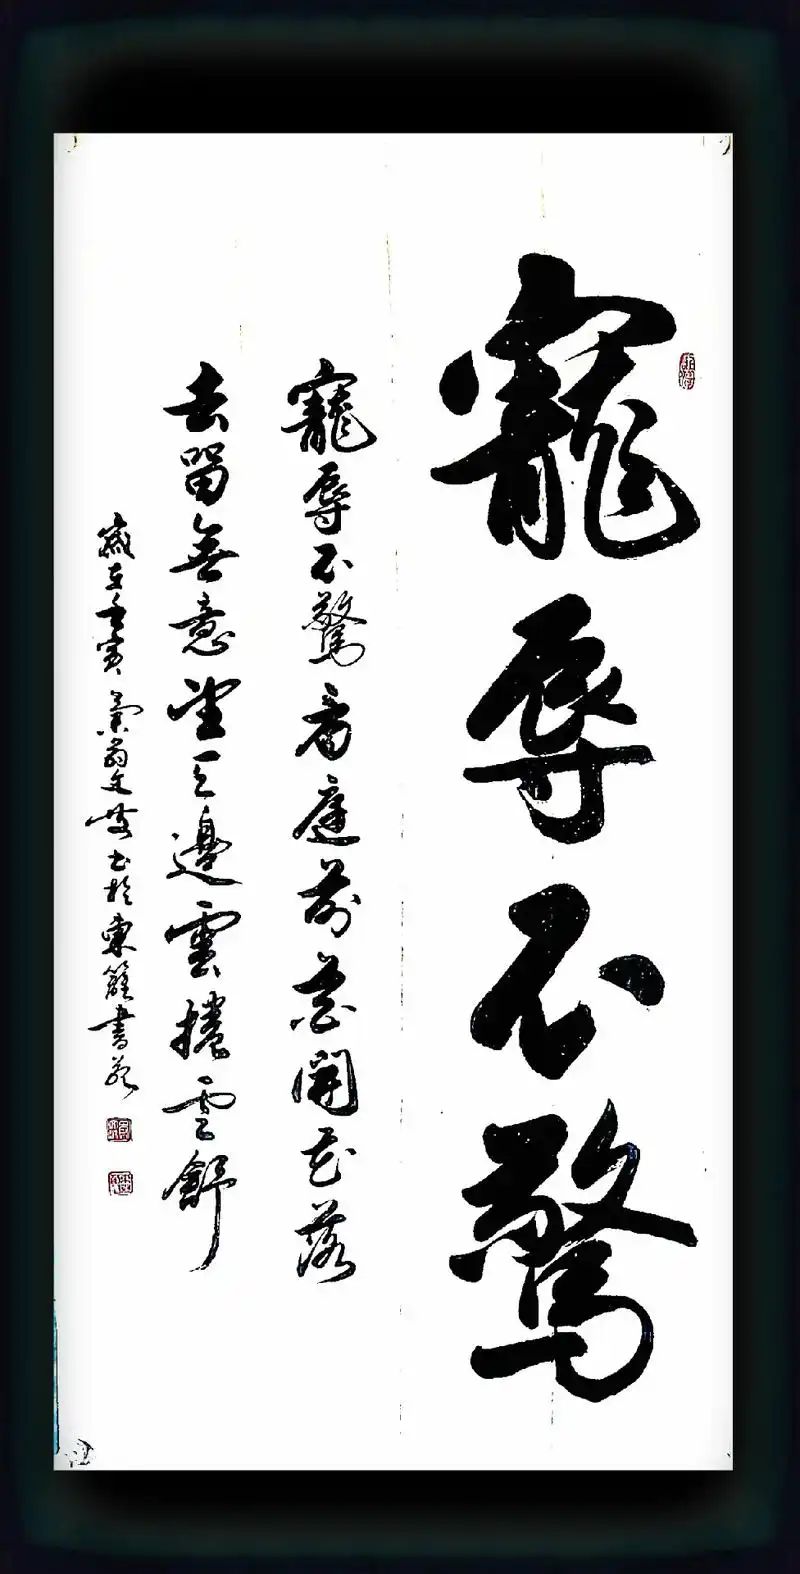 寵辱不驚
寵辱不驚看庭前花開花落
去留無意望天邊雲捲雲舒
歲在壬寅菊翁文安書於東籬書苑